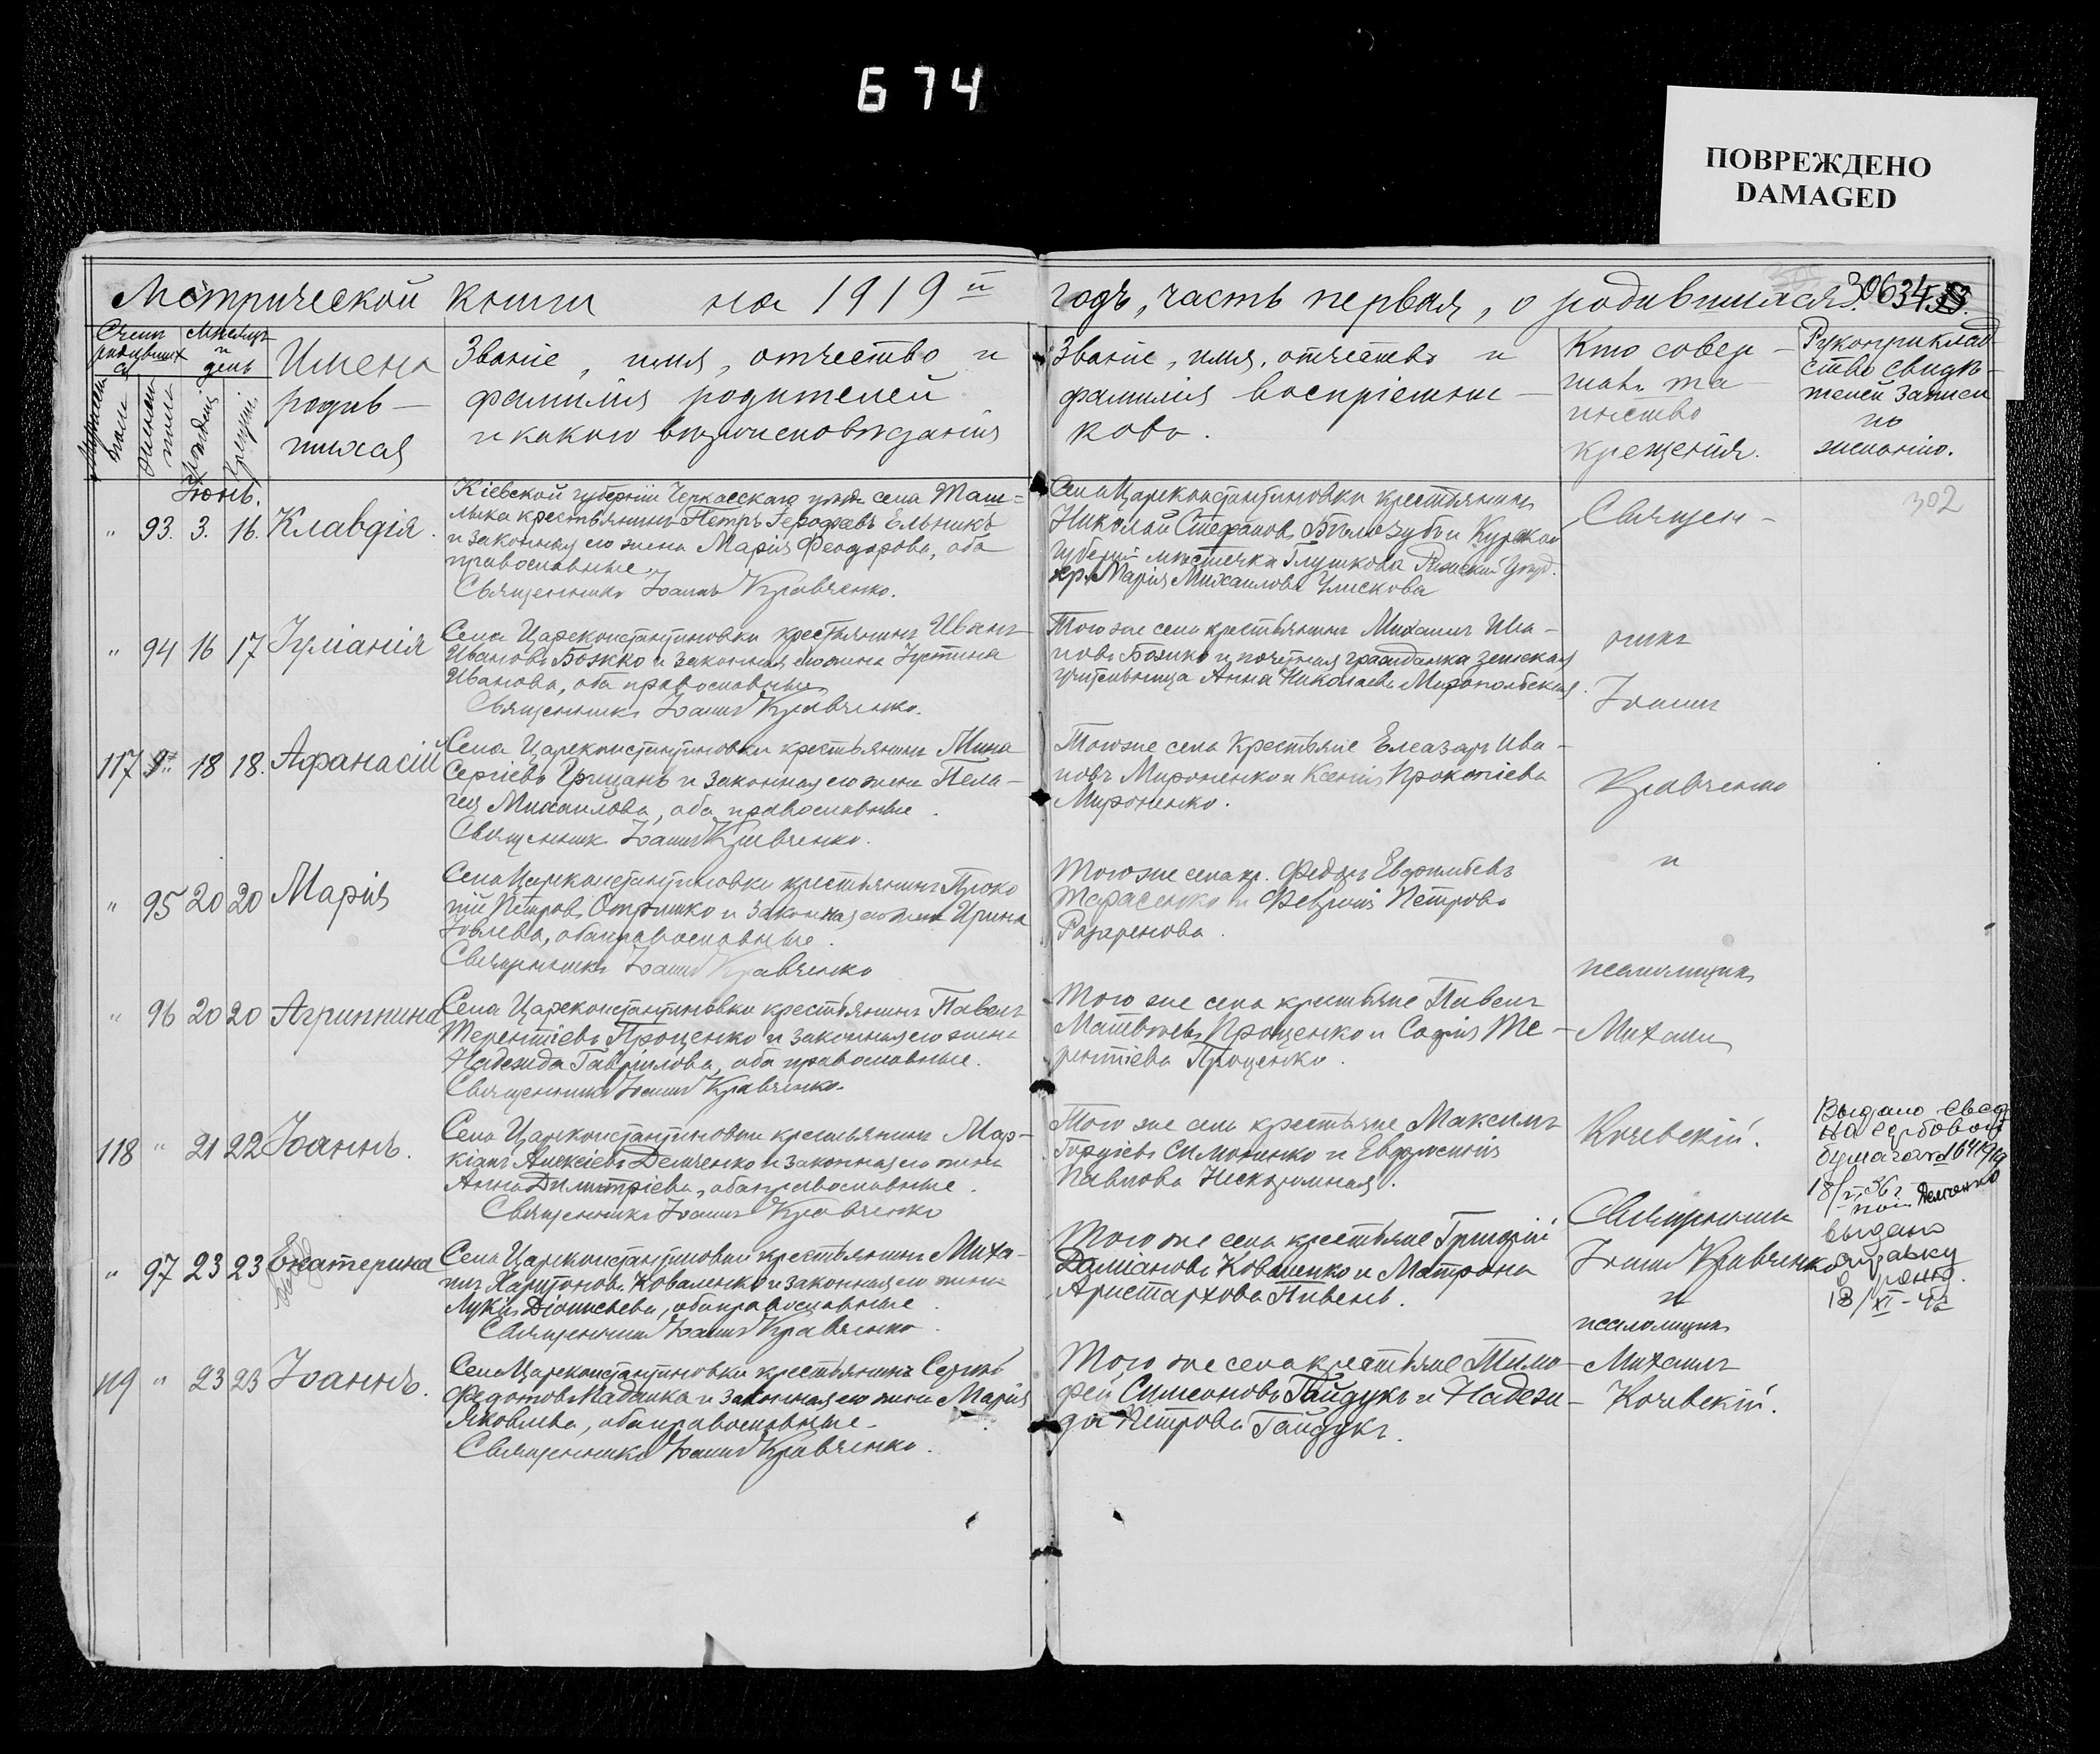 674
ПОВРЕЖДЕНО
DAMAGED
Метрической книги на 1919й
годъ, часть первая, о родившихся.
Счетъ родившихся
Мѣсяцъ и день
Мужеска пола
Женска пола
Рожденія
Крещенія
Имена
родив-
шихся
Званіе, имя, отчество и
фамилія родителей
и какого вѣроисповѣданія
Званіе, имя, отчество и
фамилія воспріемни-
ковъ.
Кто совер-
шалъ та-
инство
крещенія.
Рукоприклад-
ство свидѣ-
телей записи
по
желанію.
302
Іюнь.
" 93. 3. 16. Клавдія.
Кіевской губерніи Черкасскаго уѣзда села Таш-
лыка крестьянинъ Петръ Ельникъ
и законная его жена Марія Феодорова, оба
православные.
Священникъ Іоаннъ Кравченко.
Села Цареконстантиновки крестьянинъ
Николай Стефановъ Бѣлозубъ и Курской
губерніи мѣстечка Глушкова уѣзд.
кр. Марія Михаилова
Священ-
" 94 16 17 Іуліанія
Села Цареконстантиновки крестьянинъ Иванъ
Ивановъ Божко и законная его жена Іустина
Иванова, оба православные
Священникъ Іоаннъ Кравченко.
Того же села крестьянинъ Михаилъ Ива-
новъ Божко и почетная гражданка земская
учительница Анна Николаева Миропольская.
никъ
Іоаннъ
117 " 18 18. Афанасій
Села Цареконстантиновки крестьянинъ Мина
Сергіевъ Грицанъ и законная его жена Пела-
гея Михаилова, оба православные.
Священникъ Іоаннъ Кравченко.
Того же села крестьяне Елеазаръ Ива-
новъ Мироненко и Ксенія Прокопіева
Мироненко.
Кравченко
" 95 20 20 Марія
Села Цареконстантиновки крестьянинъ Проко-
пій Петровъ и законная его жена Ирина
Іовлева, оба православные.
Священникъ Іоаннъ Кравченко
Того же села кр. Федоръ
Тарасенко и Феврoнія Петрова
и
псаломщикъ
" 96 20 20 Агриппина
Села Цареконстантиновки крестьянинъ Павелъ
Терентіевъ Проценко и законная его жена
Надежда Гавріилова, оба православные.
Священникъ Іоаннъ Кравченко.
Того же села крестьяне Павелъ
Матвѣевъ Проценко и Софія Те-
рентіева Проценко.
Михаилъ
118 " 21 22 Іоаннъ.
Села Цареконстантиновки крестьянинъ Мар-
кіанъ Алексіевъ Демченко и законная его жена
Анна Димитріева, оба православные.
Священникъ Іоаннъ Кравченко
Того же села крестьяне Максимъ
Георгіевъ Симоненко и Евфросинія
Павлова
Кочевскій.
Выдано свед
на гербовой
бумаге
Демченко
" 97 23 23 Екатерина
Села Цареконстантиновки крестьянинъ Миха-
илъ Харитоновъ Коваленко и законная его жена
Лукія Діонисіева, оба православные.
Священникъ Іоаннъ Кравченко.
Того же села крестьяне Григорій
Даміановъ Коваленко и Матрона
Аристархова Пивень.
Священникъ
Іоаннъ Кравченко
и
псаломщикъ
выдано
справку
18/XI-42
119 " 23 23 Іоаннъ.
Села Цареконстантиновки крестьянинъ Сергій
Федотовъ Маданка и законная его жена Марія
Яковлева, оба православные.
Священникъ Іоаннъ Кравченко.
Того же села крестьяне Тимо-
фей Симеоновъ Гайдукъ и Надеж-
да Петрова Гайдукъ.
Михаилъ
Кочевскій.